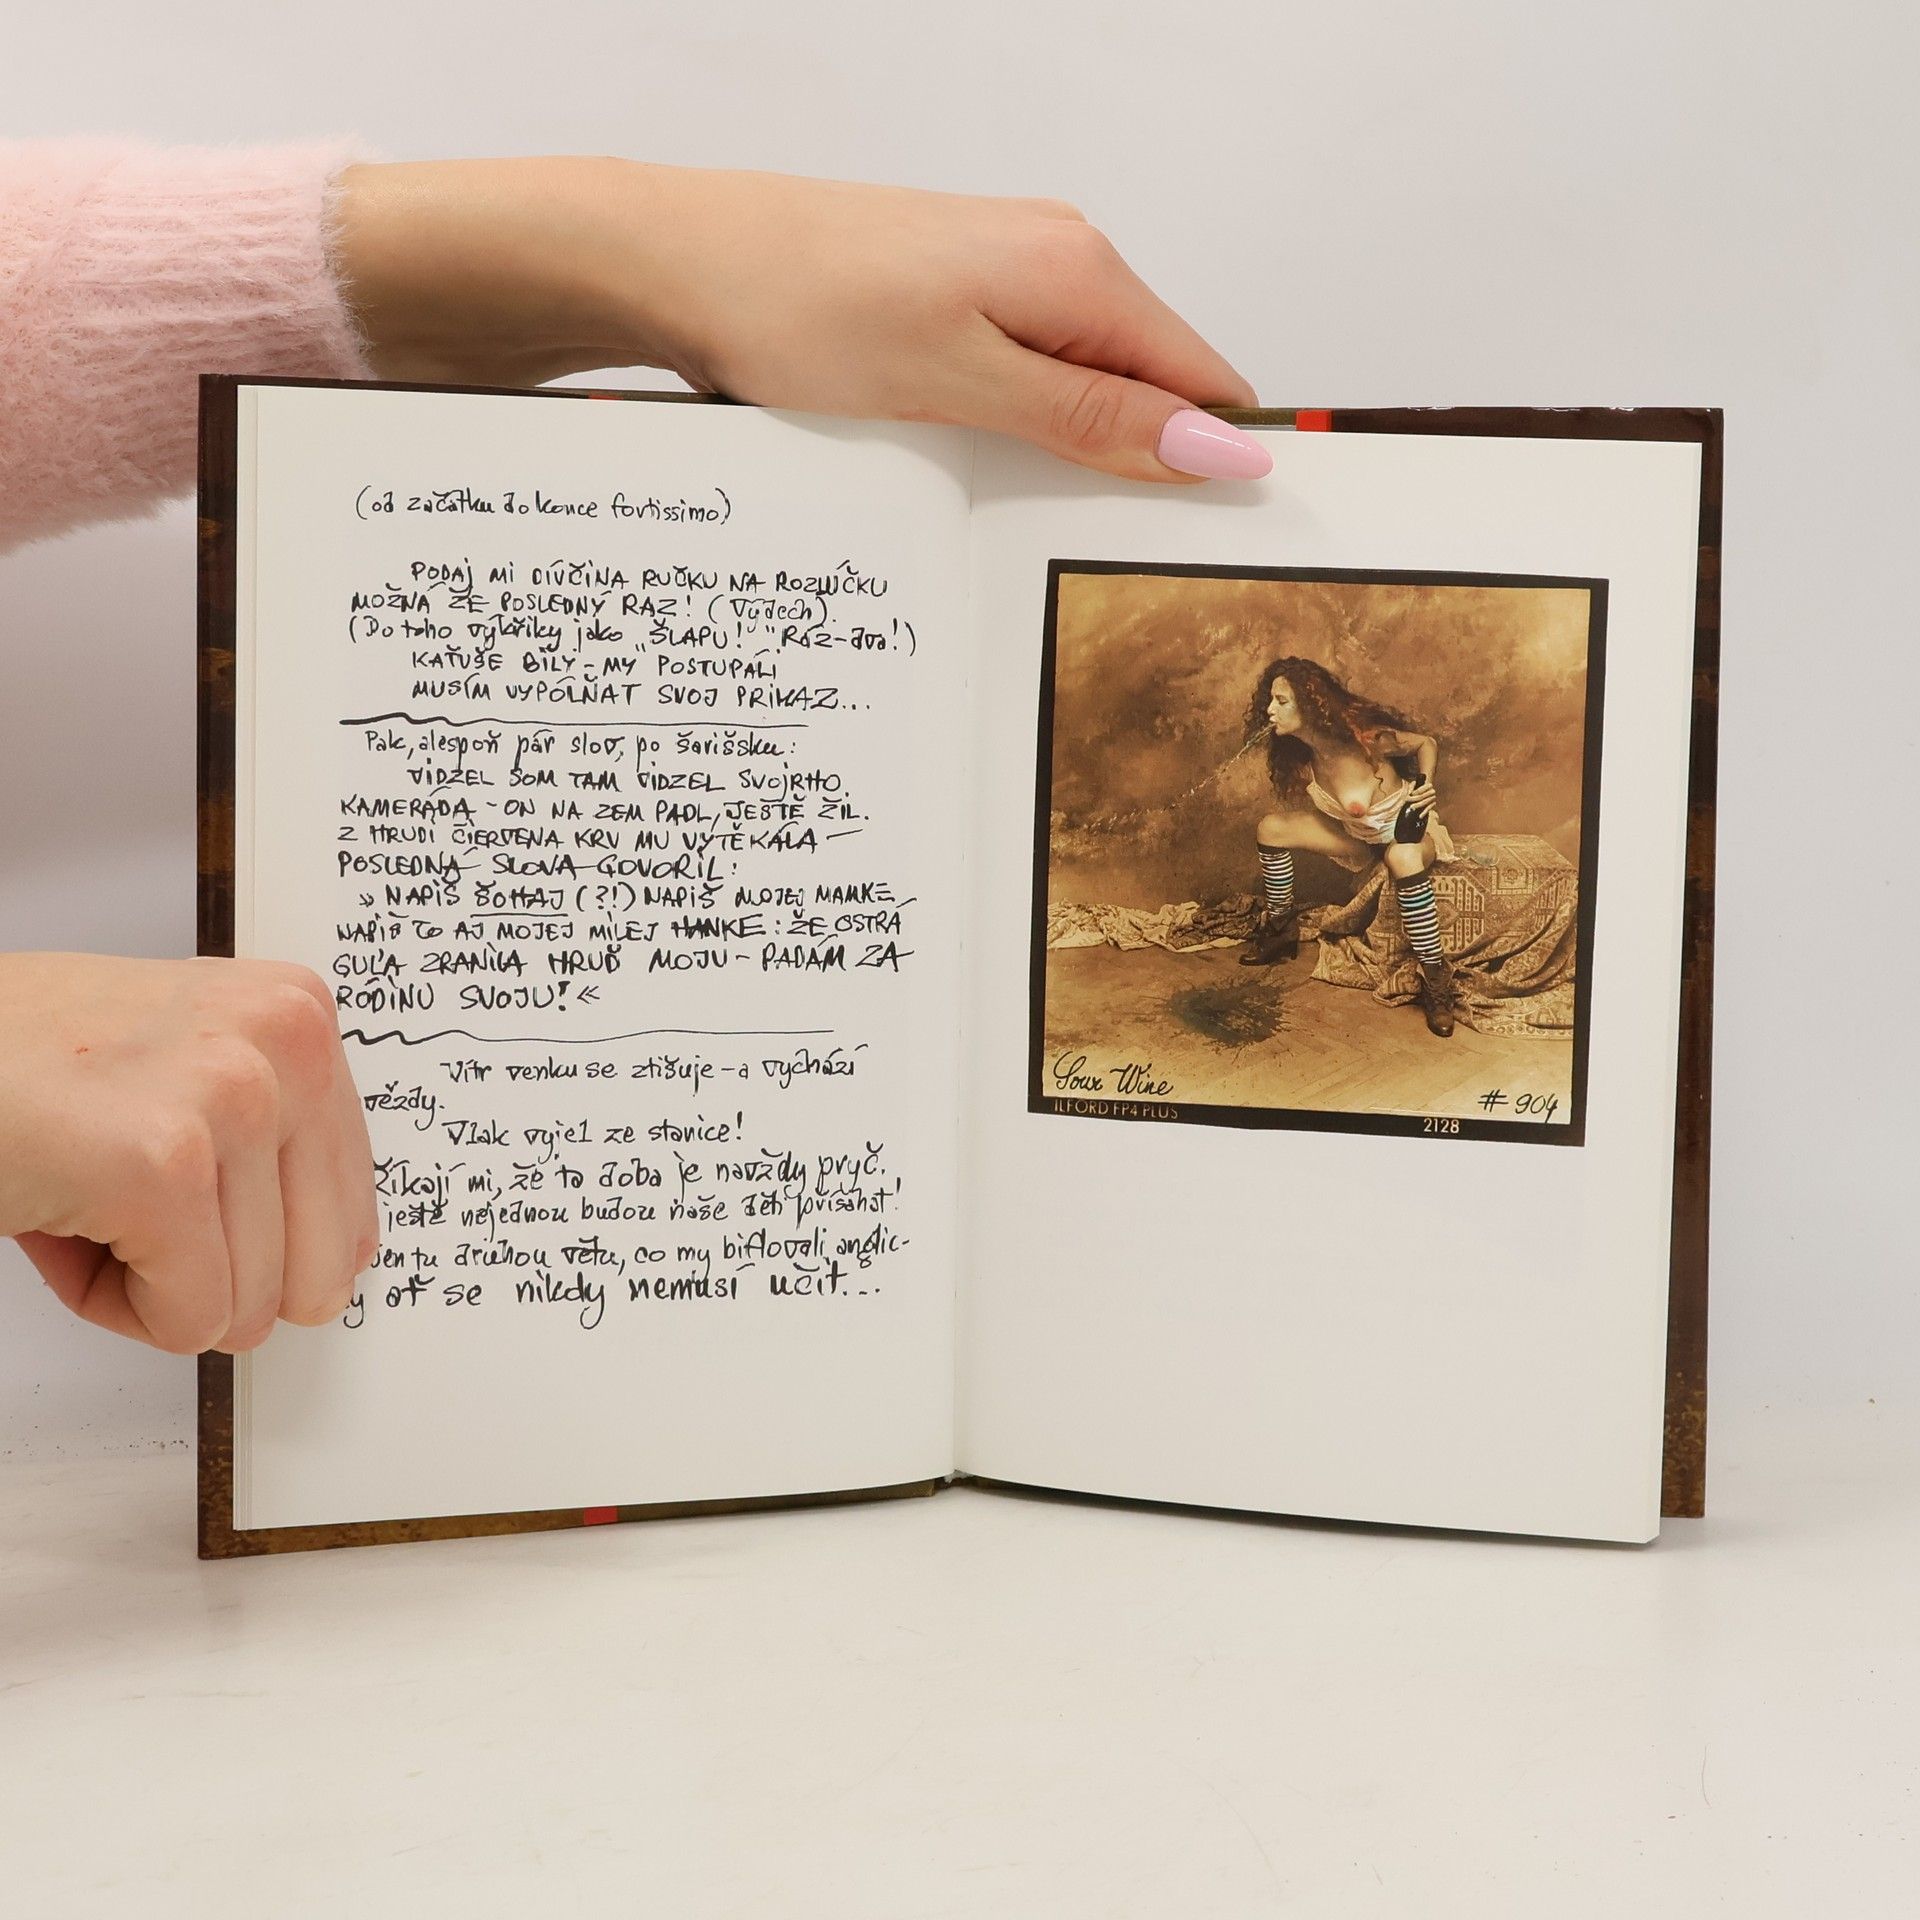 (od začátku do konce fortissimo)
PODAJ MI DÍVČINA RUČKU NA ROZLÚČKU
MOŽNÁ ŽE POSLEDNÝ RAZ! (Výdech).
(Do toho výkřiky jako „ŠLAPU!" „Ráz-dva!)
KAŤUŠE BÍLY - MY POSTUPALI
MUSÍM VYPÓLŇAT SVOJ PRIKAZ...
Pak, alespoň pár slov, po šarišsku:
VIDZEL SOM TAM VIDZEL SVOJRHO
KAMERÁDA - ON NA ZEM PADL, JEŠTĚ ŽIL.
Z HRUDI ČIERVENA KRV MU VYTĚKÁLA -
POSLEDNÁ SLOVA GOVORIL:
» NAPIŠ ŠOHAJ (?!) NAPIŠ MOJEJ MAMKE,
NAPIŠ TO AJ MOJEJ MILEJ HANKE: ŽE OSTRÁ
GUĽA ZRANILA HRUĎ MOJU - PADÁM ZA
RODINU SVOJU! «
Vítr venku se ztišuje - a vychází
vězdy.
Vlak vyjel ze stanice!
Říkají mi, že ta doba je navždy pryč.
ještě nejednou budou naše děti přísahat!
jen tu druhou větu, co my biflovali anglic-
y ať se nikdy nemusí učit...
Sour Wine
# 904
ILFORD FP4 PLUS
2128